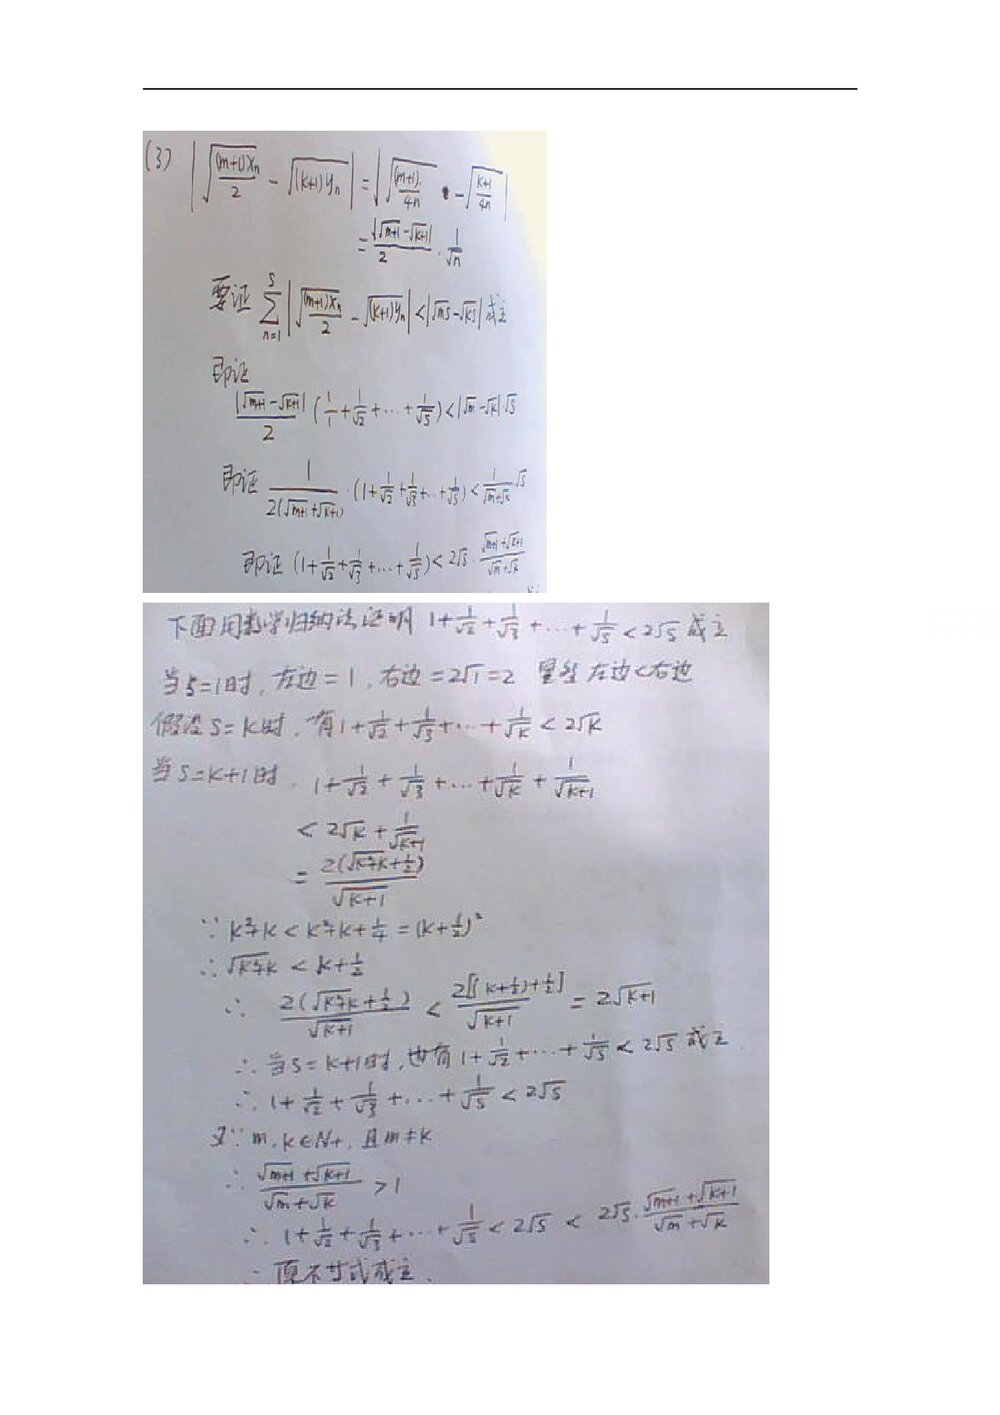 (3) |√((m+1)xₙ/2) - √((k+1)yₙ)| = |√((m+1)/4n) - √((k+1)/4n)|
= |√(m+1) - √(k+1)|/2 · 1/√n
要证 ∑ₙ₌₁ˢ |√((m+1)xₙ/2) - √((k+1)yₙ)| < |√(ms) - √(ks)| 成立
即证
|√(m+1) - √(k+1)|/2 (1/1 + 1/√2 + … + 1/√s) < |√m - √k| √s
即证 1/(2(√(m+1) + √(k+1))) · (1 + 1/√2 + 1/√3 + … + 1/√s) < 1/(√m + √k) √s
即证 (1 + 1/√2 + 1/√3 + … + 1/√s) < 2√s · (√(m+1) + √(k+1))/(√m + √k)
下面用数学归纳法证明 1 + 1/√2 + 1/√3 + … + 1/√s < 2√s 成立
当s=1时, 左边=1, 右边=2√1=2 显然 左边<右边
假设 s=k时, 有 1 + 1/√2 + 1/√3 + … + 1/√k < 2√k
当s=k+1时, 1 + 1/√2 + 1/√3 + … + 1/√k + 1/√(k+1)
< 2√k + 1/√(k+1)
= 2(√(k²+k) + 1/2)/√(k+1)
∵ k²+k < k²+k+1/4 = (k+1/2)²
∴ √(k²+k) < k+1/2
∴ 2(√(k²+k) + 1/2)/√(k+1) < 2[(k+1/2)+1/2]/√(k+1) = 2√(k+1)
∴ 当s=k+1时, 也有 1 + 1/√2 + … + 1/√s < 2√s 成立.
∴ 1 + 1/√2 + 1/√3 + … + 1/√s < 2√s
又∵ m,k∈N₊, 且m≠k
∴ (√(m+1) + √(k+1))/(√m + √k) > 1
∴ 1 + 1/√2 + 1/√3 + … + 1/√s < 2√s < 2√s · (√(m+1) + √(k+1))/(√m + √k)
∴ 原不等式成立.